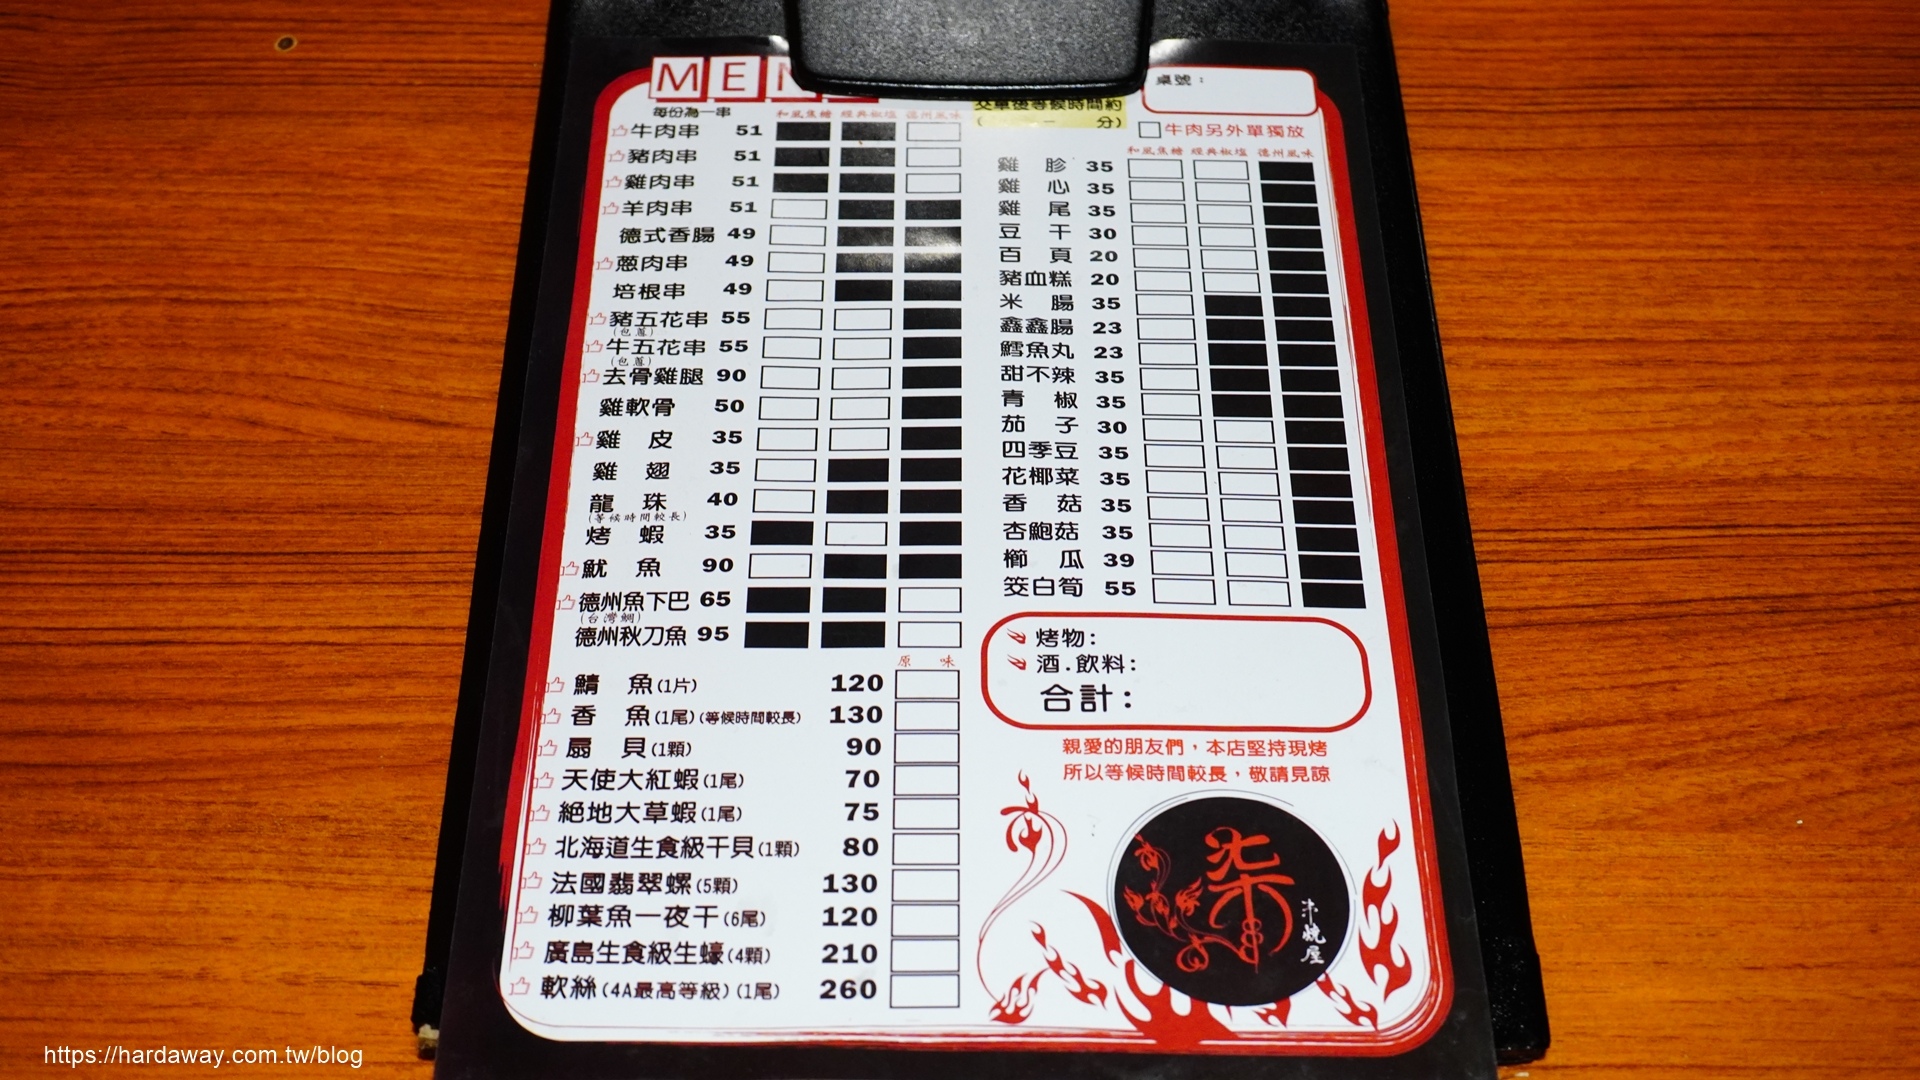 MEN
每份為一串
和風焦糖 經典椒塩 德州風味
牛肉串 51
豬肉串 51
雞肉串 51
羊肉串 51
德式香腸 49
蔥肉串 49
培根串 49
豬五花串 55
(包蔥)
牛五花串 55
(包蔥)
去骨雞腿 90
雞軟骨 50
雞皮 35
雞翅 35
龍珠 40
(等候時間較長)
烤蝦 35
魷魚 90
德州魚下巴 65
(台灣鯛)
德州秋刀魚 95
原味
鯖魚(1片) 120
香魚(1尾)(等候時間較長) 130
扇貝(1顆) 90
天使大紅蝦(1尾) 70
絕地大草蝦(1尾) 75
北海道生食級干貝(1顆) 80
法國翡翠螺(5顆) 130
柳葉魚一夜干(6尾) 120
廣島生食級生蠔(4顆) 210
軟絲(4A最高等級)(1尾) 260
交單後等候時間約
( – 分)
桌號:
牛肉另外單獨放
和風焦糖 經典椒塩 德州風味
雞胗 35
雞心 35
雞尾 35
豆干 30
百頁 20
豬血糕 20
米腸 35
鑫鑫腸 23
鱈魚丸 23
甜不辣 35
青椒 35
茄子 30
四季豆 35
花椰菜 35
香菇 35
杏鮑菇 35
櫛瓜 39
筊白筍 55
烤物:
酒.飲料:
合計:
親愛的朋友們,本店堅持現烤
所以等候時間較長,敬請見諒
柒
串燒屋
https://hardaway.com.tw/blog